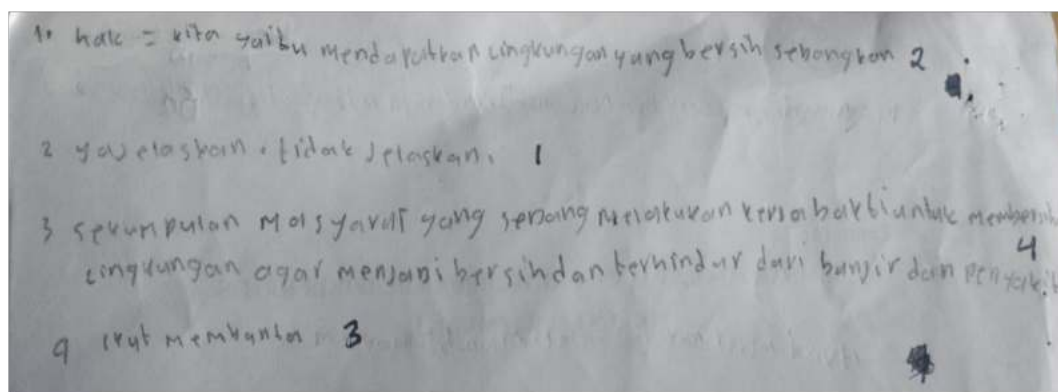 1. hak = kita yaitu mendapatkan lingkungan yang bersih sebangkan 2
2 ya jelaskan. tidak jelaskan. 1
3 sekumpulan masyarat yang senang melakukan kerja bakti untuk membersih
lingkungan agar menjadi bersih dan terhindar dari banjir dan penyakit 4
4 ikut membantu 3